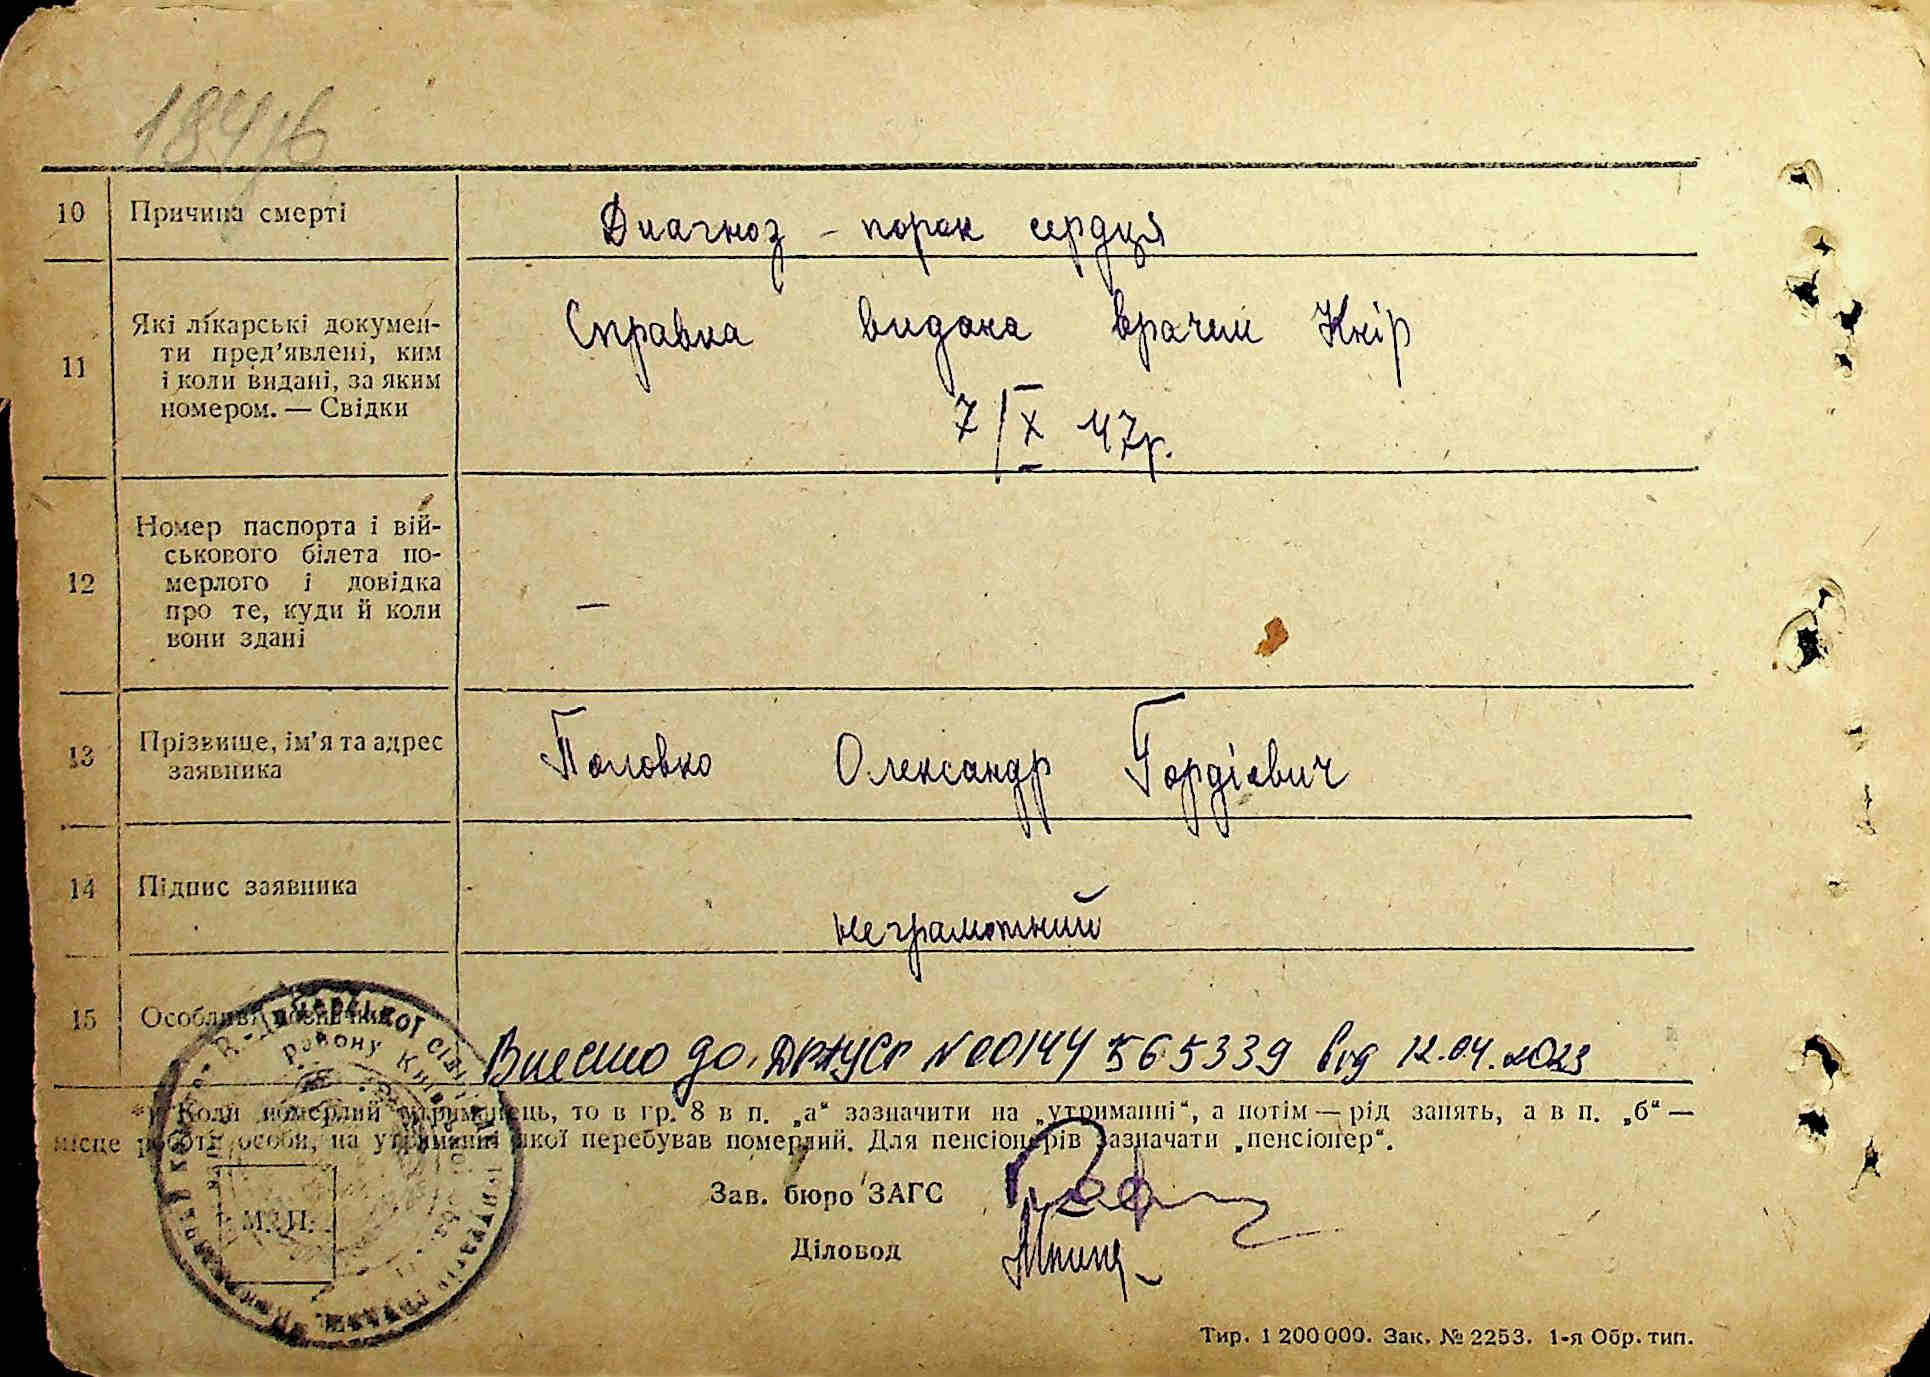 184/б
10 Причина смерті Диагноз - порок сердця
11 Які лікарські докумен-
ти пред'явлені, ким
і коли видані, за яким
номером. — Свідки
Справка видана врачем Кнір
7/X 47р.
12 Номер паспорта і вій-
ськового білета по-
мерлого і довідка
про те, куди й коли
вони здані
—
13 Прізвище, ім'я та адрес
заявника
Половко Олександр Гордієвич
14 Підпис заявника
неграмотний
15 Особливі позначки
Внесено до ДРАЦСГ №00144565339 від 12.04.2023
*) Коли померлий утриманець, то в гр. 8 в п. „а“ зазначити на „утриманні“, а потім — рід занять, а в п. „б“ —
місце роботи особи, на утриманні якої перебував померлий. Для пенсіонерів зазначати „пенсіонер“.
Зав. бюро ЗАГС
Діловод
М. П.
району
Тир. 1 200 000. Зак. № 2253. 1-я Обр. тип.